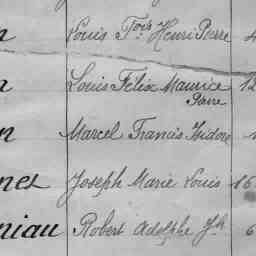 n Louis Fois Henri Pierre 4
n Louis Félix Maurice 12
Pierre
n Marcel Francis Isidore
nes Joseph Marie Louis 15
niau Robert Adolphe Jh 6